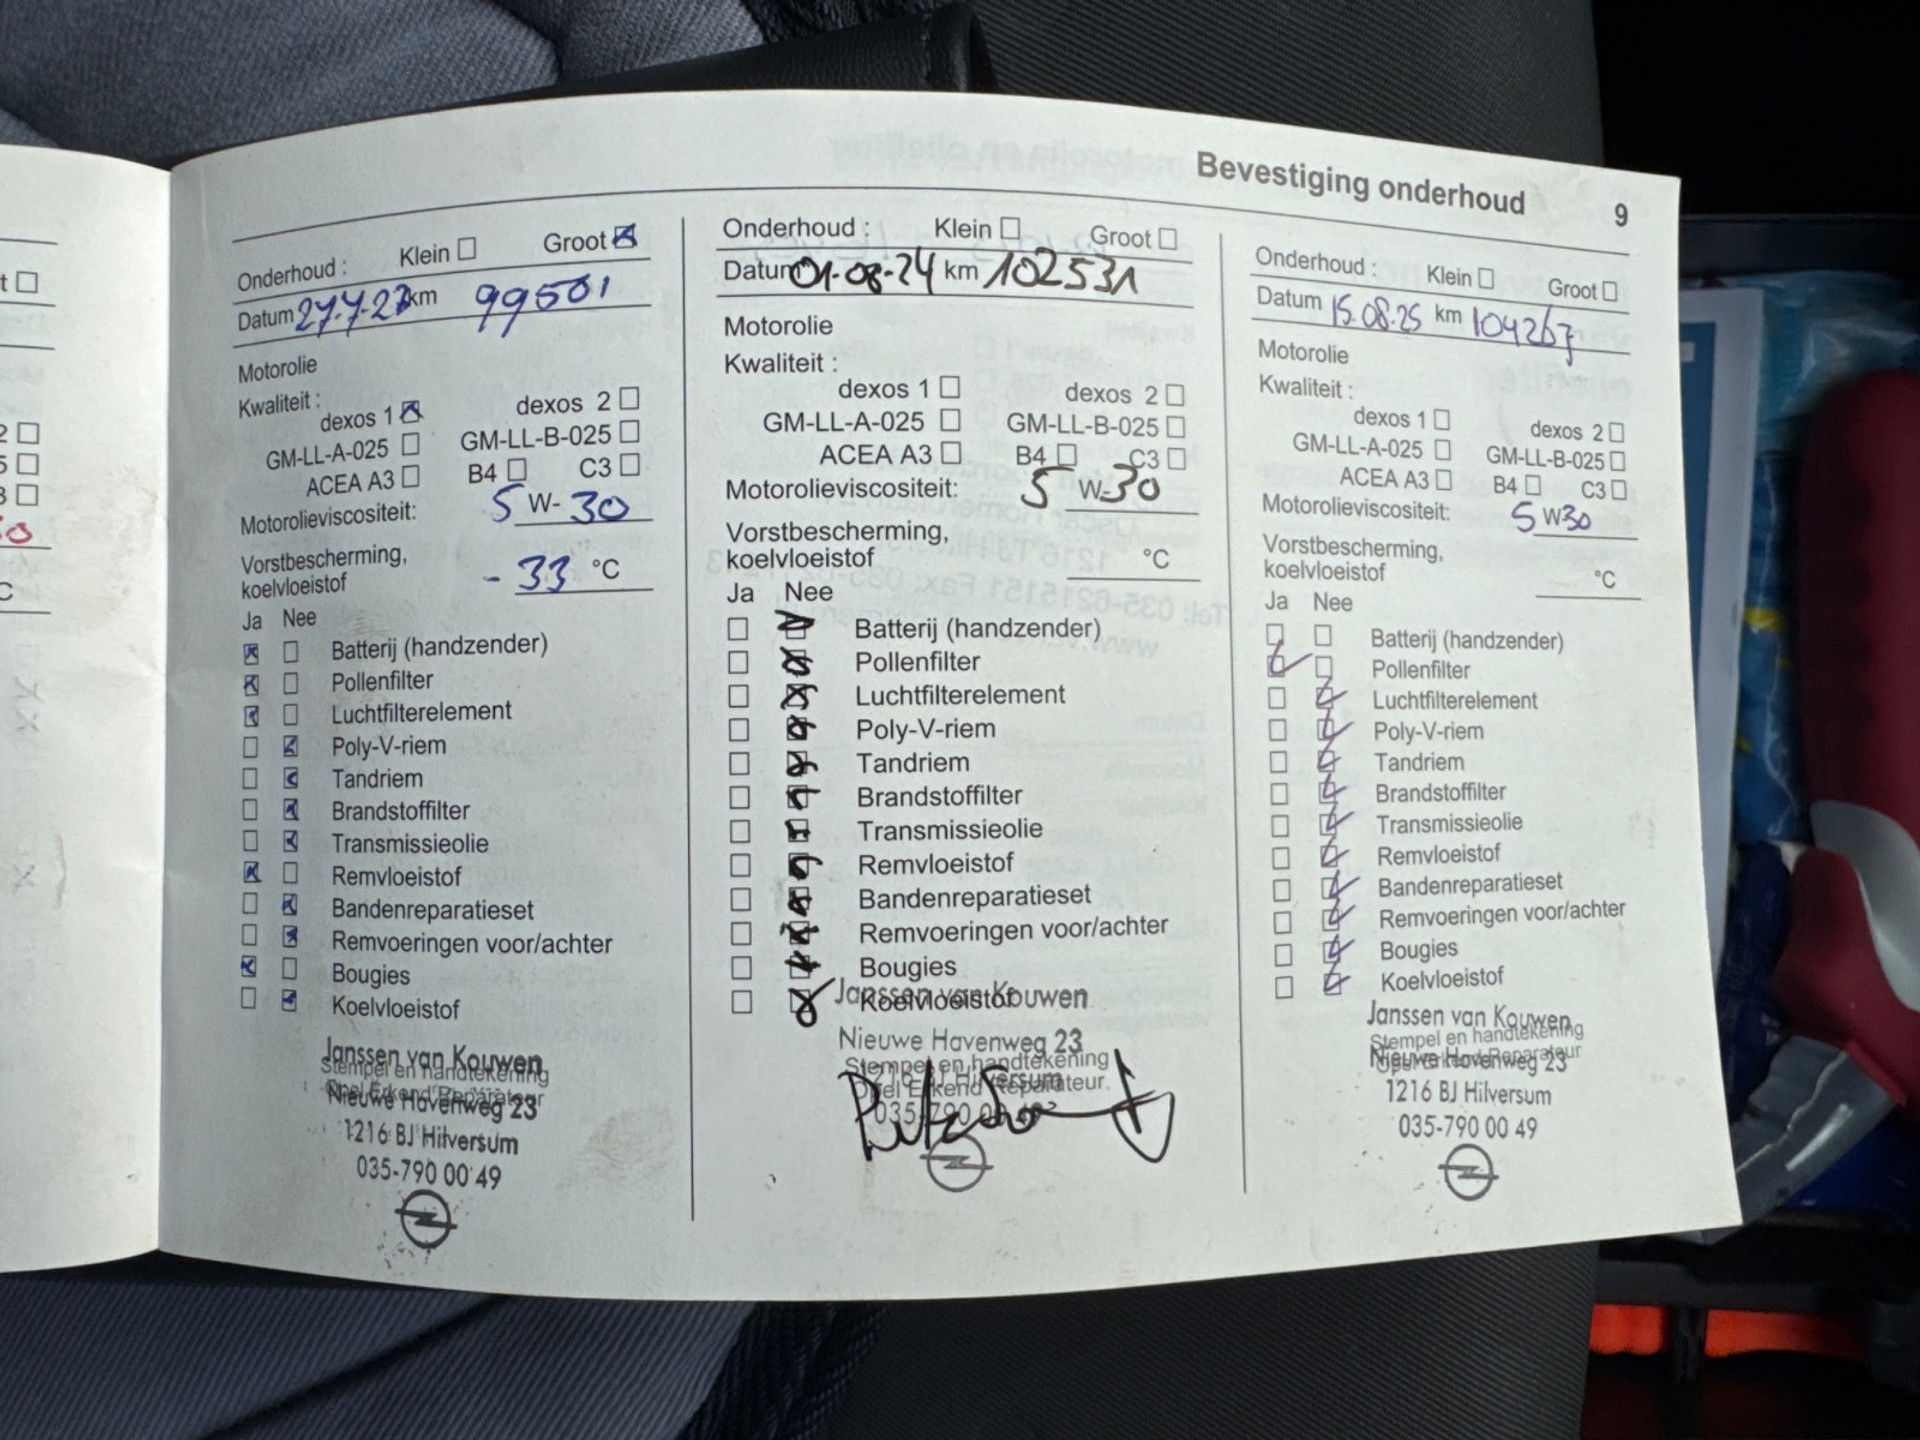 Bevestiging onderhoud
9
Onderhoud : Klein Groot
Datum 27.7.23 km 99501
Motorolie
Kwaliteit :
dexos 1 dexos 2
GM-LL-A-025 GM-LL-B-025
ACEA A3 B4 C3
Motorolieviscositeit: 5 W- 30
Vorstbescherming,
koelvloeistof - 33 °C
Ja Nee
Batterij (handzender)
Pollenfilter
Luchtfilterelement
Poly-V-riem
Tandriem
Brandstoffilter
Transmissieolie
Remvloeistof
Bandenreparatieset
Remvoeringen voor/achter
Bougies
Koelvloeistof
Janssen van Kouwen
Stempel en handtekening
Opel Erkend Reparateur
Nieuwe Havenweg 23
1216 BJ Hilversum
035-790 00 49
Onderhoud : Klein Groot
Datum 01-08-24 km 102531
Motorolie
Kwaliteit :
dexos 1 dexos 2
GM-LL-A-025 GM-LL-B-025
ACEA A3 B4 C3
Motorolieviscositeit: 5 W-30
Vorstbescherming,
koelvloeistof °C
Ja Nee
Batterij (handzender)
Pollenfilter
Luchtfilterelement
Poly-V-riem
Tandriem
Brandstoffilter
Transmissieolie
Remvloeistof
Bandenreparatieset
Remvoeringen voor/achter
Bougies
Koelvloeistof
Janssen van Kouwen
Nieuwe Havenweg 23
Stempel en handtekening
1216 BJ Hilversum
Opel Erkend Reparateur.
035-790 00 49
Onderhoud : Klein Groot
Datum 15.08.25 km 104267
Motorolie
Kwaliteit :
dexos 1 dexos 2
GM-LL-A-025 GM-LL-B-025
ACEA A3 B4 C3
Motorolieviscositeit: 5 W30
Vorstbescherming,
koelvloeistof °C
Ja Nee
Batterij (handzender)
Pollenfilter
Luchtfilterelement
Poly-V-riem
Tandriem
Brandstoffilter
Transmissieolie
Remvloeistof
Bandenreparatieset
Remvoeringen voor/achter
Bougies
Koelvloeistof
Janssen van Kouwen
Stempel en handtekening
Nieuwe Havenweg 23
Opel Erkend Reparateur
1216 BJ Hilversum
035-790 00 49